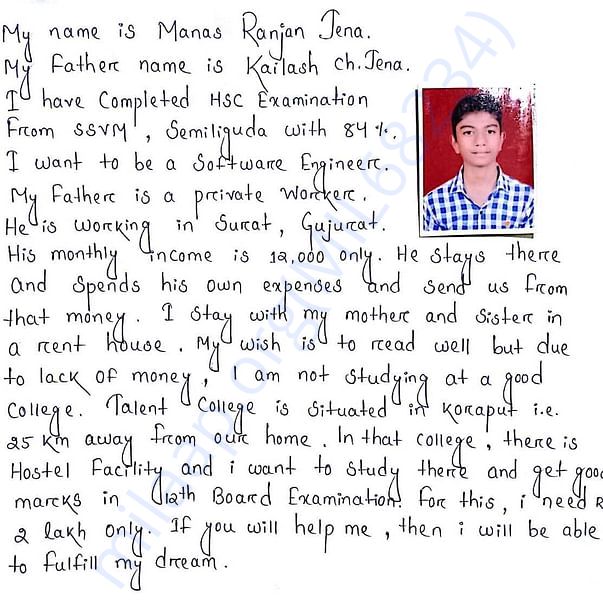 My name is Manas Ranjan Jena.
My Father name is Kailash ch. Jena.
I have Completed HSC Examination
From SSVM, Semiliguda with 84%.
I want to be a Software Engineer.
My Father is a private Worker.
He is working in Surat, Gujurat.
His monthly income is 12,000 only. He stays there
and spends his own expenses and send us from
that money. I stay with my mother and sister in
a rent house. My wish is to read well but due
to lack of money, I am not studying at a good
College. Talent College is situated in Koraput i.e.
25 Km away from our home. In that college, there is
Hostel Facility and i want to study there and get good
marks in 12th Board Examination. For this, i need R
2 lakh only. If you will help me, then i will be able
to fulfill my dream.
milaap.org